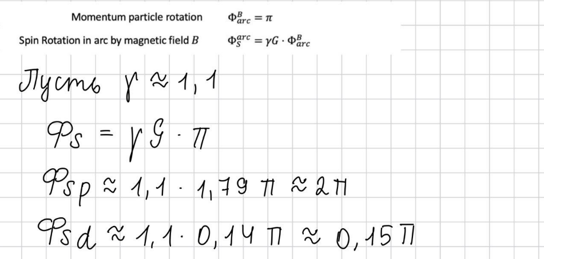 Momentum particle rotation Φ^B_arc = π
Spin Rotation in arc by magnetic field B Φ^arc_S = γG · Φ^B_arc
Пусть γ ≈ 1,1
Φs = γ G · π
Φsp ≈ 1,1 · 1,79 π ≈ 2π
Φsd ≈ 1,1 · 0,14 π ≈ 0,15 π